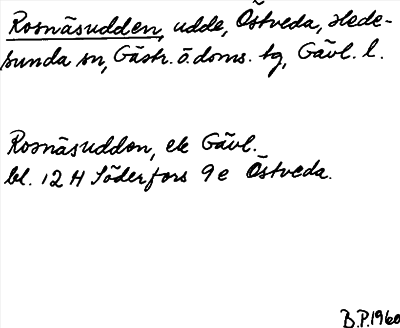 Rosnäsudden, udde, Östveda, Hede-
sunda sn, Gästr. ö. doms. tg, Gävl. l.
Rosnäsudden, ek Gävl.
bl. 12 H Söderfors 9 e Östveda.
B.P. 1960